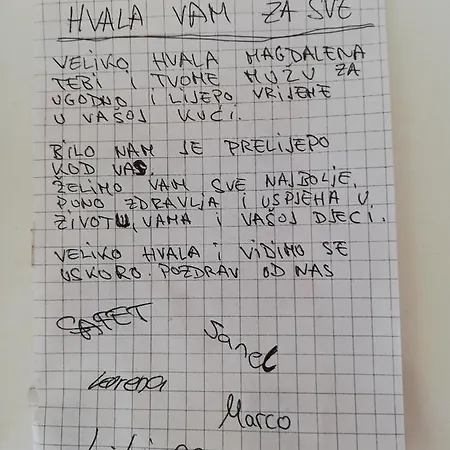 HVALA VAM ZA SVE
VELIKO HVALA MAGDALENA
TEBI I TVOME MUŽU ZA
UGODNO I LIJEPO VRIJEME
U VAŠOJ KUĆI.
BILO NAM JE PRELIJEPO
KOD VAS
ŽELIMO VAM SVE NAJBOLJE,
PUNO ZDRAVLJA I USPJEHA U
ŽIVOTU, VAMA I VAŠOJ DJECI.
VELIKO HVALA I VIDIMO SE
USKORO. POZDRAV OD NAS
SAFET
Sanel
Lorena
Marco